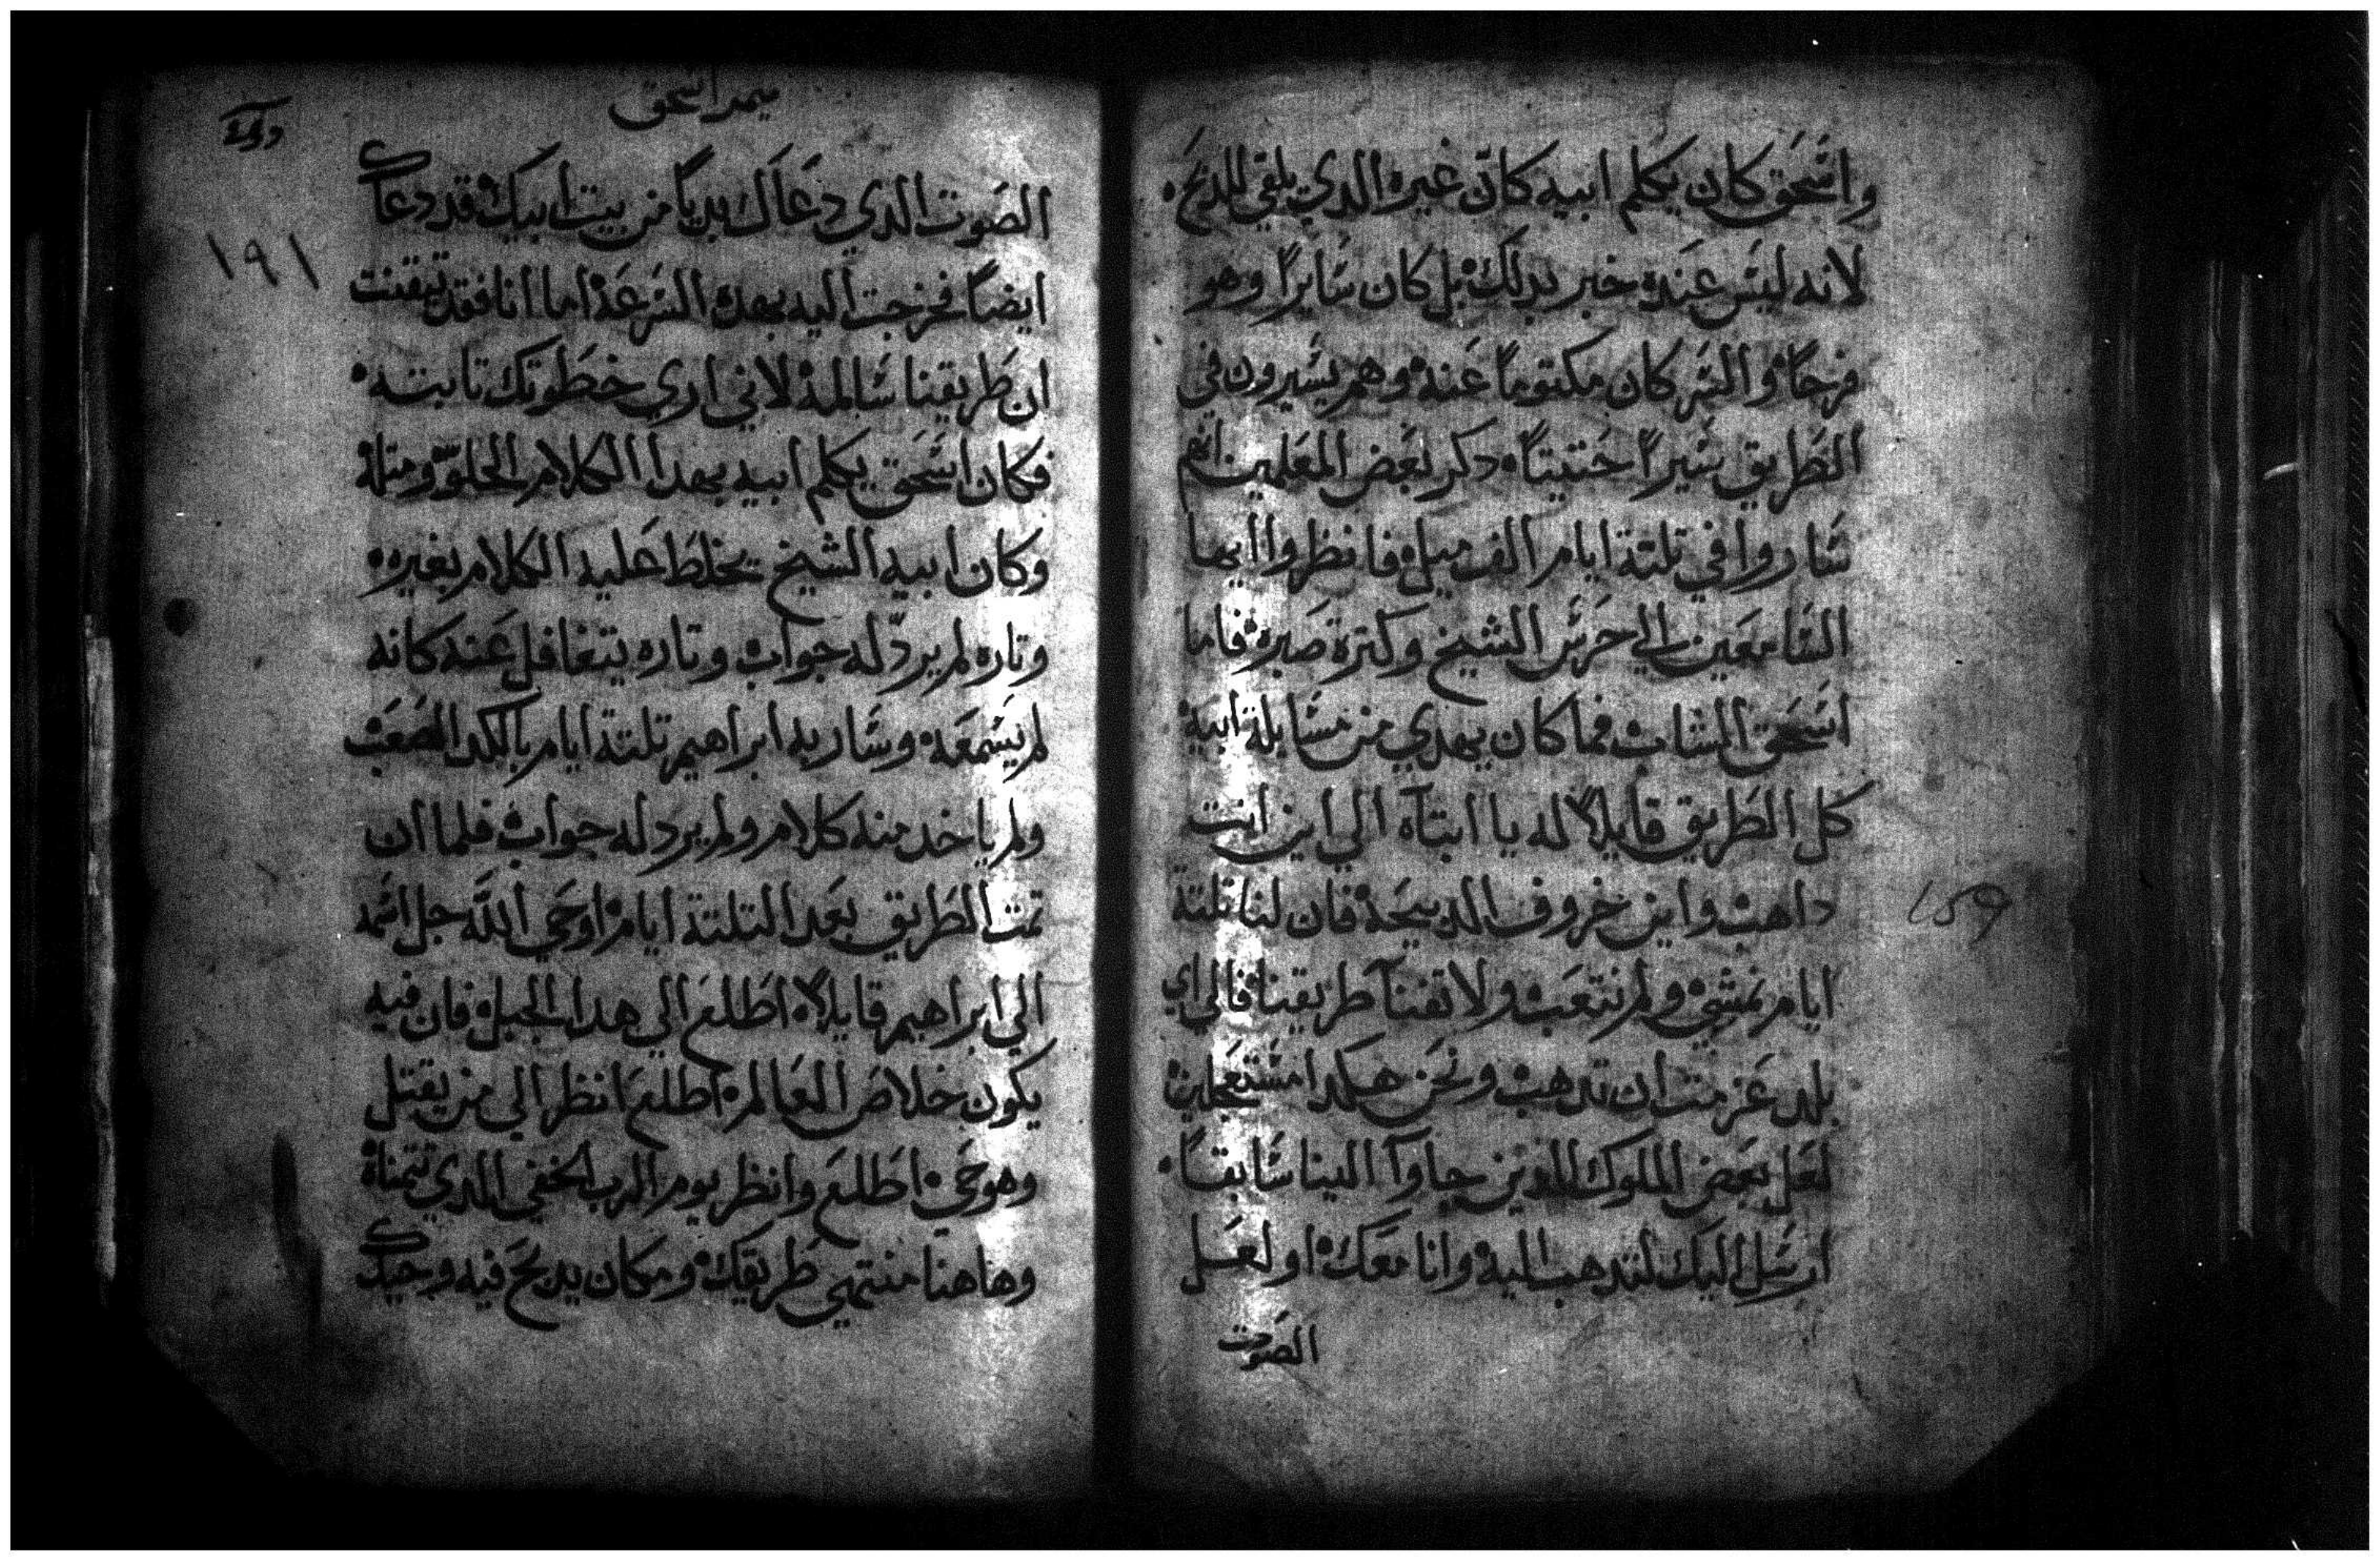 واسحق كان يكلم ابيه كان غيره الدي يلقي للدبح.
لانه ليس عنده خبر بدلك بل كان سايرًا وهو
فرحًا والسر كان مكتومًا عنه وهم يسيرون في
الطريق سيرًا حتيتًا. دكر بعض المعلمين انهم
ساروا في تلتة ايام الف ميل فانظروا ايها
السامعين الي حرس الشيخ وكترة صبره فاما
اسحق الشاب فما كان يهدي من مسايلة ابيه
كل الطريق قايلًا له يا ابتاه الي اين انت
داهب واين خروف الدبيحة فان لنا تلتة
ايام نمشي ولم نتعب ولا تفنا طريقنا فالي اي
بلد عزمت ان تدهب ونحن هكدا مستعجلين
لعل بعض الملوك الدين جاوآ الينا سابقًا.
ارسل اليك لتدهب اليه وانا معك او لعل
الصوت
ميمر اسحق
١٩١
الصوت الدي دعاك بديًا من بيت ابيك قد دعاك
ايضًا فخرجت اليه بهده السرعة اما انا فقد تيقنت
ان طريقنا سالمة لاني اري خطوتك تابته.
فكان اسحق يكلم ابيه بهدا الكلام الحلوّ ومتله
وكان ابيه الشيخ يخلط عليه الكلام بغيره.
وتاره لم يردّ له جواب وتاره يتغافل عنه كانه
لم يسمعه وسار به ابراهيم تلتة ايام بالكد الصعب
ولم ياخد منه كلام ولم يرد له جواب فلما ان
تمت الطريق بعد التلتة ايام اوحي الله جل اسمه
الي ابراهيم قايلًا. اطلع الي هدا الجبل فان فيه
يكون خلاص العالم. اطلع انظر الي من يقتل
وهو حي. اطلع وانظر يوم الرب الخفي الدي تتمناه
وهاهنا منتهي طريقك ومكان يدبح فيه وحيدك